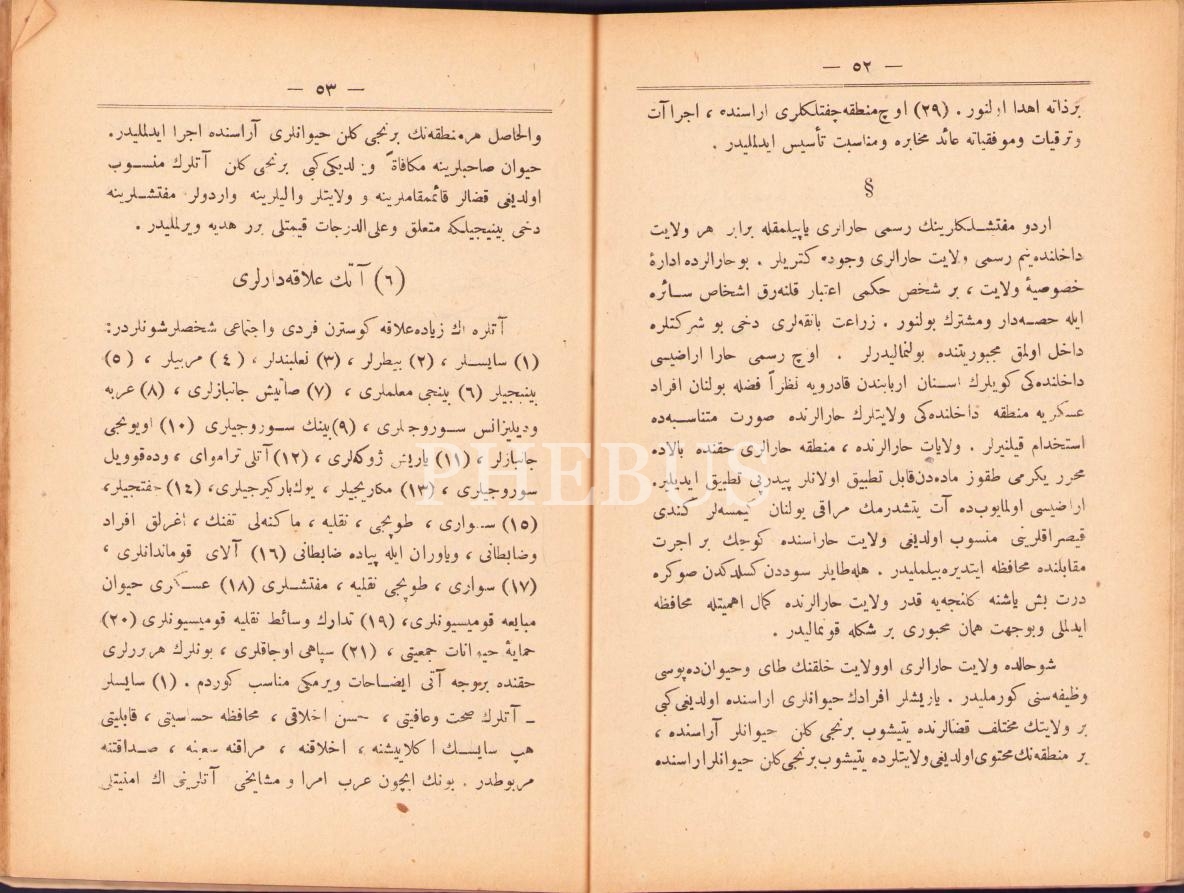 — ٥٢ —
برذاته اهدا اولنور . (٢٩) اوچ منطقه چفتلكلری اراسنده ، اجراآت
وترقيات وموفقياته عائد مخابره ومناسبت تأسيس ايدلمليدر .
§
اردو مفتشلكلرينك رسمی حارالری ياپيلمقله برابر هر ولايت
داخلنده نيم رسمی ولايت حارالری وجوده كتريلر . بوحارالرده ادارهٔ
خصوصيهٔ ولايت ، بر شخص حكمی اعتبار قلنه‌رق اشخاص سائره
ايله حصه‌دار ومشترك بولنور . زراعت بانقه‌لری دخی بو شركتلره
داخل اولمق مجبوريتنده بولنماليدرلر . اوچ رسمی حارا اراضيسی
داخلنده‌كی كويلرك اسنان اربابندن قادرويه نظراً فضله بولنان افراد
عسكريه منطقه داخلنده‌كی ولايتلرك حارالرنده صورت متناسبه‌ده
استخدام قيلنيرلر . ولايات حارالرنده ، منطقه حارالری حقنده بالاده
محرر يكرمی طقوز ماده‌دن قابل تطبيق اولانلر پيدرپی تطبيق ايديلير.
اراضيسی اولمايوب‌ده آت يتشدرمك مراقی بولنان كيمسه‌لر كندی
قيصراقلرينی منسوب اولديغی ولايت حاراسنده كوچك بر اجرت
مقابلنده محافظه ايتديره‌بيلمليدر . هله طايلر سوددن كسلدكدن صوكره
درت بش ياشنه كلنجه‌يه قدر ولايت حارالرنده كمال اهميتله محافظه
ايدلملی وبوجهت همان مجبوری بر شكله قونماليدر .
شو حالده ولايت حارالری اوولايت خلقنك طای وحيوان ده‌پوسی
وظيفه‌سنی كورمليدر . ياريشلر افرادك حيوانلری اراسنده اولديغی كبی
بر ولايتك مختلف قضالرنده يتيشوب برنجی كلن حيوانلر آراسنده ،
بر منطقه‌نك محتوی اولديغی ولايتلرده يتيشوب برنجی كلن حيوانلر اراسنده
— ٥٣ —
والحاصل هر منطقه‌نك برنجی كلن حيوانلری آراسنده اجرا ايدلمليدر.
حيوان صاحبلرينه مكافاةً ويرلديكی كبی برنجی كلن آتلرك منسوب
اولديغی قضالر قائممقاملرينه و ولايتلر واليلرينه واردولر مفتشلرينه
دخی بينيجيلكه متعلق وعلی الدرجات قيمتلی برر هديه ويرلمليدر .
(٦) آتك علاقه‌دارلری
آتلره اك زياده علاقه كوسترن فردی واجتماعی شخصلر شونلردر:
(١) سايسلر ، (٢) بيطرلر ، (٣) نعلبندلر ، (٤) مربيلر ، (٥)
بينيجيلر (٦) بينجی معلملری ، (٧) صاتيش جانبازلری ، (٨) عربه
وديليژانس سوروجيلری ، (٩) بينك سوروجيلری (١٠) اويونجی
جانبازلر ، (١١) ياريش ژوكه‌لری ، (١٢) آتلی تراموای ، وده‌قوويل
سوروجيلری ، (١٣) مكاريجيلر ، يوك‌باركيرجيلری، (١٤) چفتجيلر،
(١٥) سواری ، طوپچی ، نقليه ، ماكنه‌لی تفنك ، اغرلق افراد
وضابطانی ، وياوران ايله پياده ضابطانی (١٦) آلای قوماندانلری ،
(١٧) سواری ، طوپچی نقليه ، مفتشلری (١٨) عسكری حيوان
مبايعه قوميسيونلری، (١٩) تدارك وسائط نقليه قوميسيونلری (٢٠)
حمايهٔ حيوانات جمعيتی ، (٢١) سپاهی اوجاقلری ، بونلرك هربرلری
حقنده بروجه آتی ايضاحات ويرمكی مناسب كوردم . (١) سايسلر
ـ آتلرك صحت وعافيتی ، حسن اخلاقی ، محافظه حساسيتی ، قابليتی
هپ سايسك اكلاييشنه ، اخلاقنه ، مراقنه سعينه ، صداقتنه
مربوطدر . بونك ايچون عرب امرا و مشايخی آتلرينی اك امنيتلی
PHEBUS